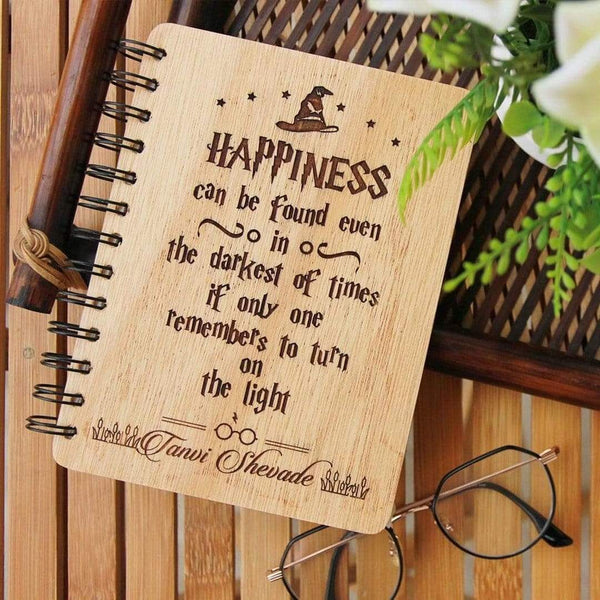 HAPPINESS
can be found even
in
the darkest of times
if only one
remembers to turn
on
the light
Tanvi Shevade